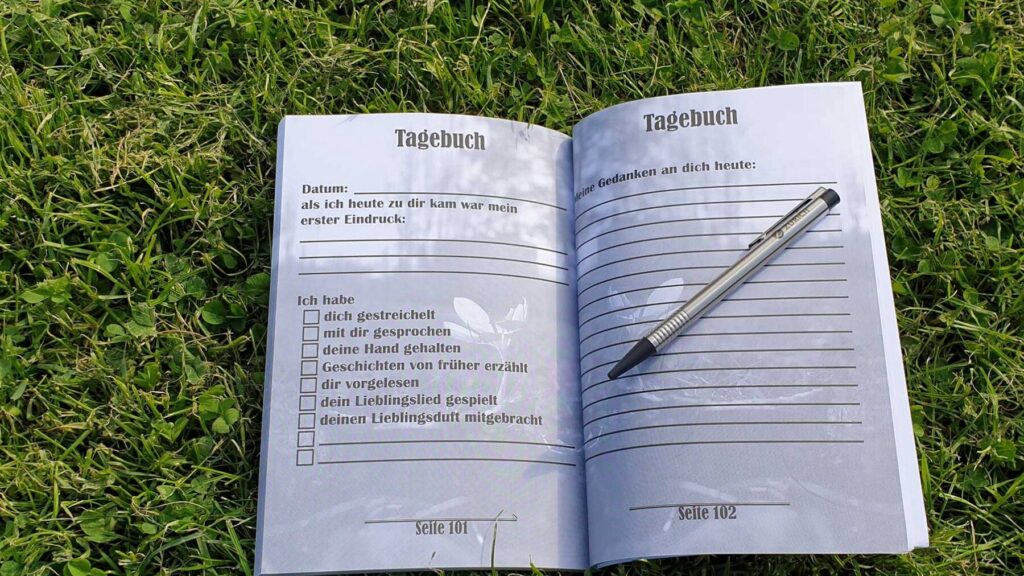 Tagebuch
Datum:
als ich heute zu dir kam war mein
erster Eindruck:
Ich habe
dich gestreichelt
mit dir gesprochen
deine Hand gehalten
Geschichten von früher erzählt
dir vorgelesen
dein Lieblingslied gespielt
deinen Lieblingsduft mitgebracht
Seite 101
Tagebuch
Meine Gedanken an dich heute:
Seite 102